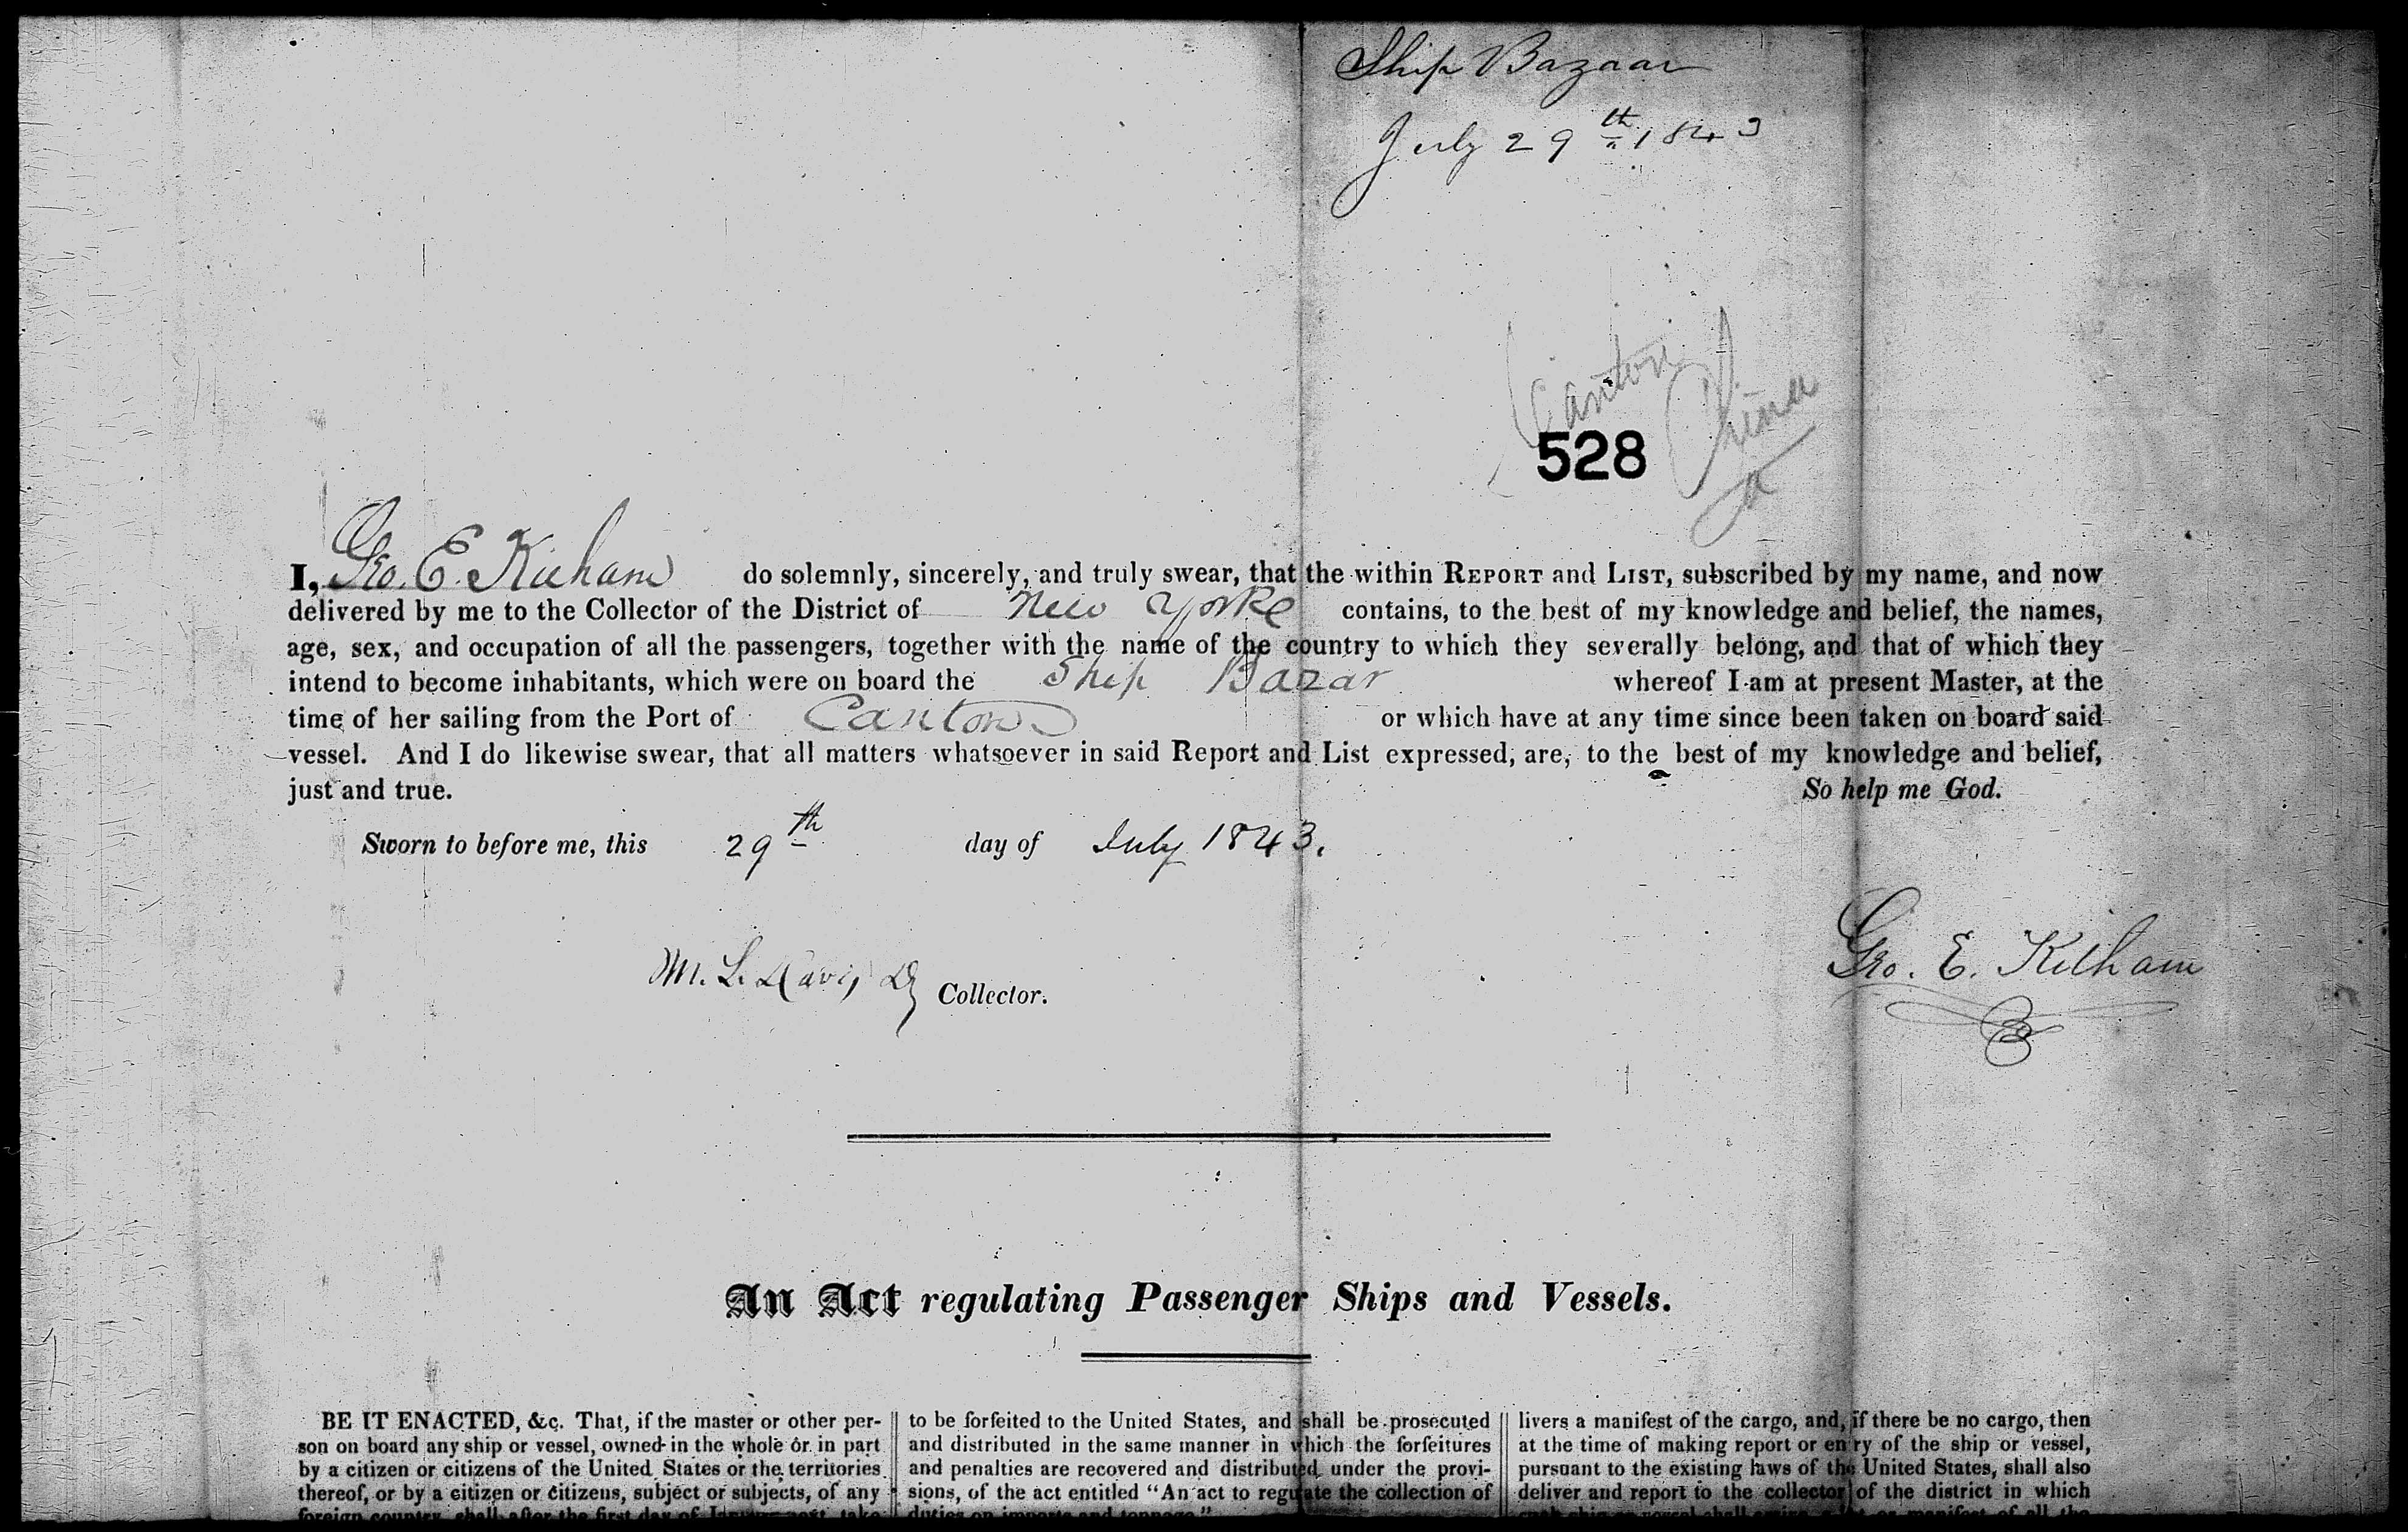 Ship Bazaar
July 29th 1843
Canton
China
528
I, Geo. E. Kilham do solemnly, sincerely, and truly swear, that the within REPORT and LIST, subscribed by my name, and now
delivered by me to the Collector of the District of New Yorke contains, to the best of my knowledge and belief, the names,
age, sex, and occupation of all the passengers, together with the name of the country to which they severally belong, and that of which they
intend to become inhabitants, which were on board the Ship Bazar whereof I am at present Master, at the
time of her sailing from the Port of Canton or which have at any time since been taken on board said
vessel. And I do likewise swear, that all matters whatsoever in said Report and List expressed, are, to the best of my knowledge and belief,
just and true. So help me God.
Sworn to before me, this 29th day of July 1843.
Geo. E. Kilham
M. L. Davis Dy Collector.
An Act regulating Passenger Ships and Vessels.
BE IT ENACTED, &c. That, if the master or other per-
son on board any ship or vessel, owned in the whole or in part
by a citizen or citizens of the United States or the territories
thereof, or by a citizen or citizens, subject or subjects, of any
foreign country, shall, after the first day of January next, take
to be forfeited to the United States, and shall be prosecuted
and distributed in the same manner in which the forfeitures
and penalties are recovered and distributed under the provi-
sions, of the act entitled "An act to regulate the collection of
duties on imports and tonnage."
livers a manifest of the cargo, and, if there be no cargo, then
at the time of making report or entry of the ship or vessel,
pursuant to the existing laws of the United States, shall also
deliver and report to the collector of the district in which